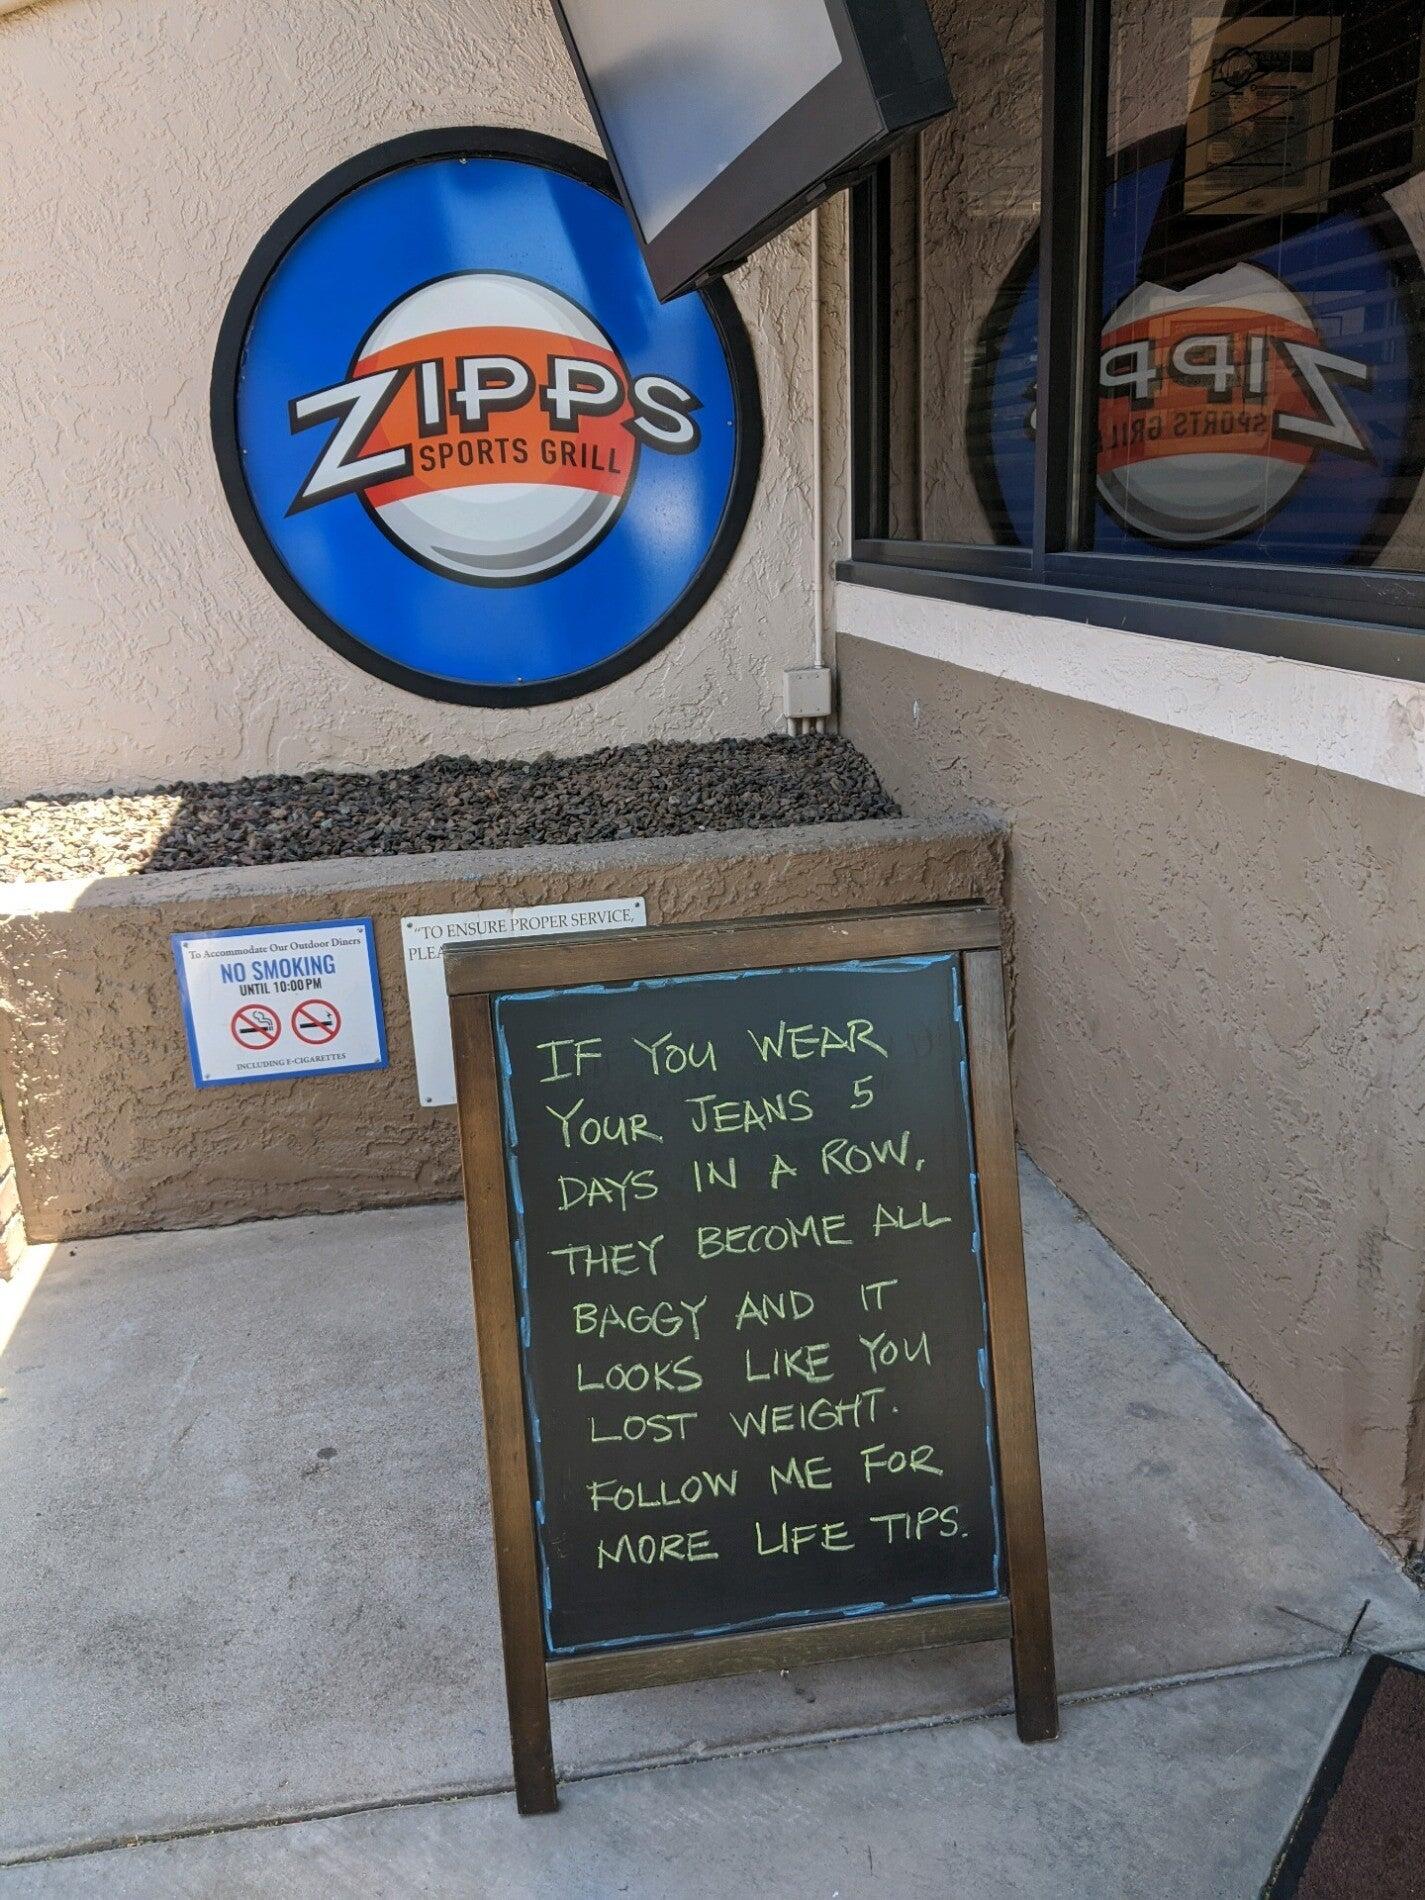 ZIPPS
SPORTS GRILL
To Accommodate Our Outdoor Diners
NO SMOKING
UNTIL 10:00 PM
INCLUDING E-CIGARETTES
"TO ENSURE PROPER SERVICE,
IF YOU WEAR
YOUR JEANS 5
DAYS IN A ROW,
THEY BECOME ALL
BAGGY AND IT
LOOKS LIKE YOU
LOST WEIGHT.
FOLLOW ME FOR
MORE LIFE TIPS.